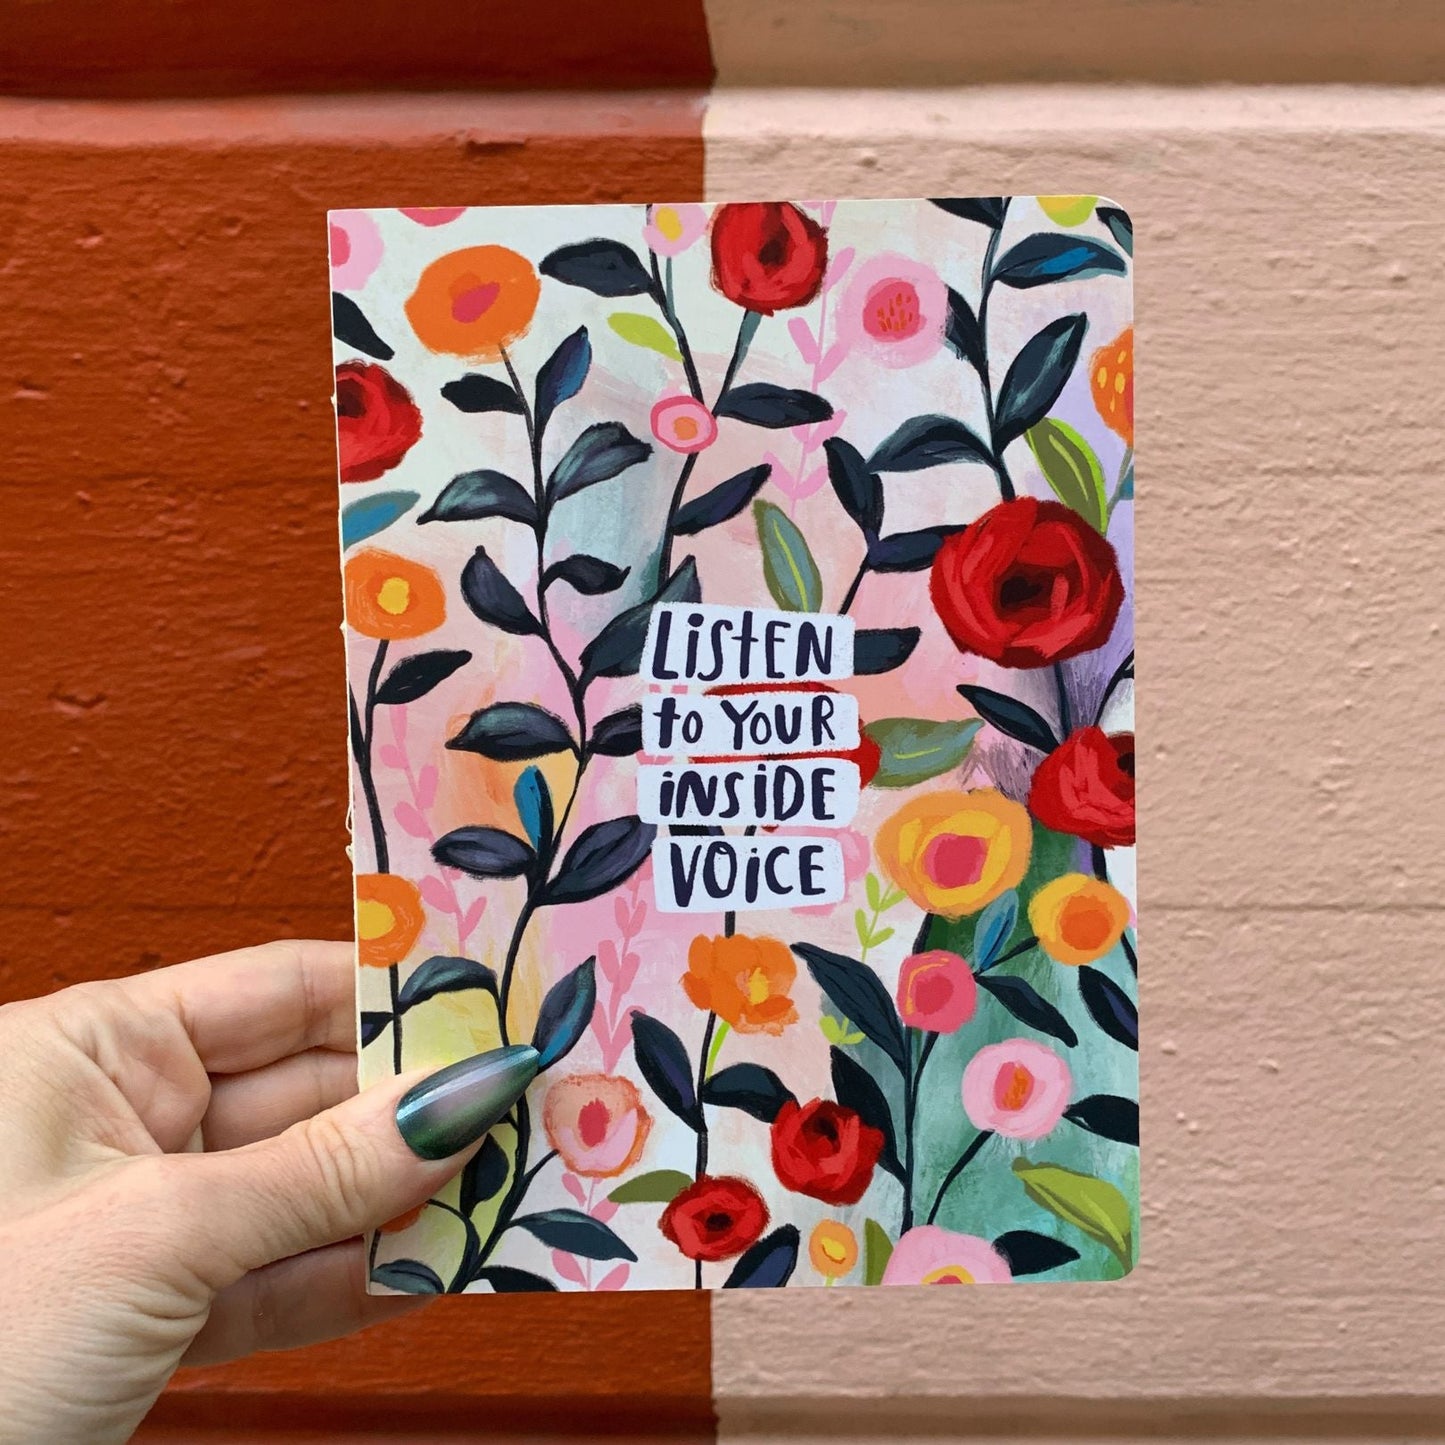 LiSTEN
to YOUR
iNSiDE
VOiCE